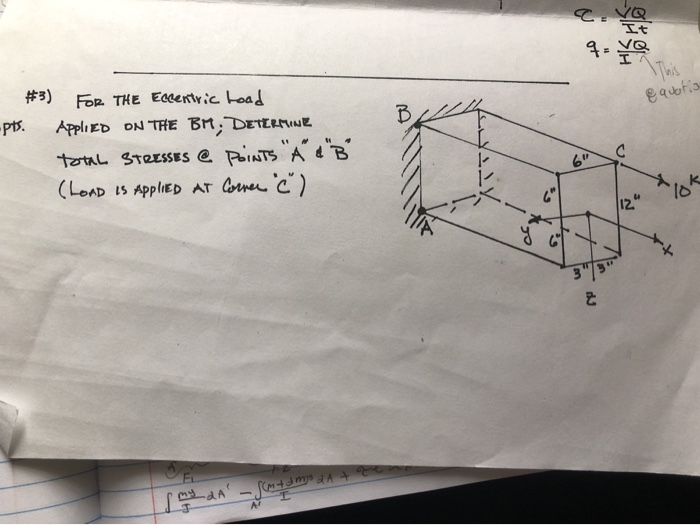 τ = VQ
It
q = VQ
I
This
#3) FOR THE Eccentric Load
pts. APPLIED ON THE BM; DETERMINE
TOTAL STRESSES @ POINTS "A" & "B"
(LOAD IS APPLIED AT Corner "C")
B
C
6"
10K
6"
12"
A
y
6"
x
3" 3"
z